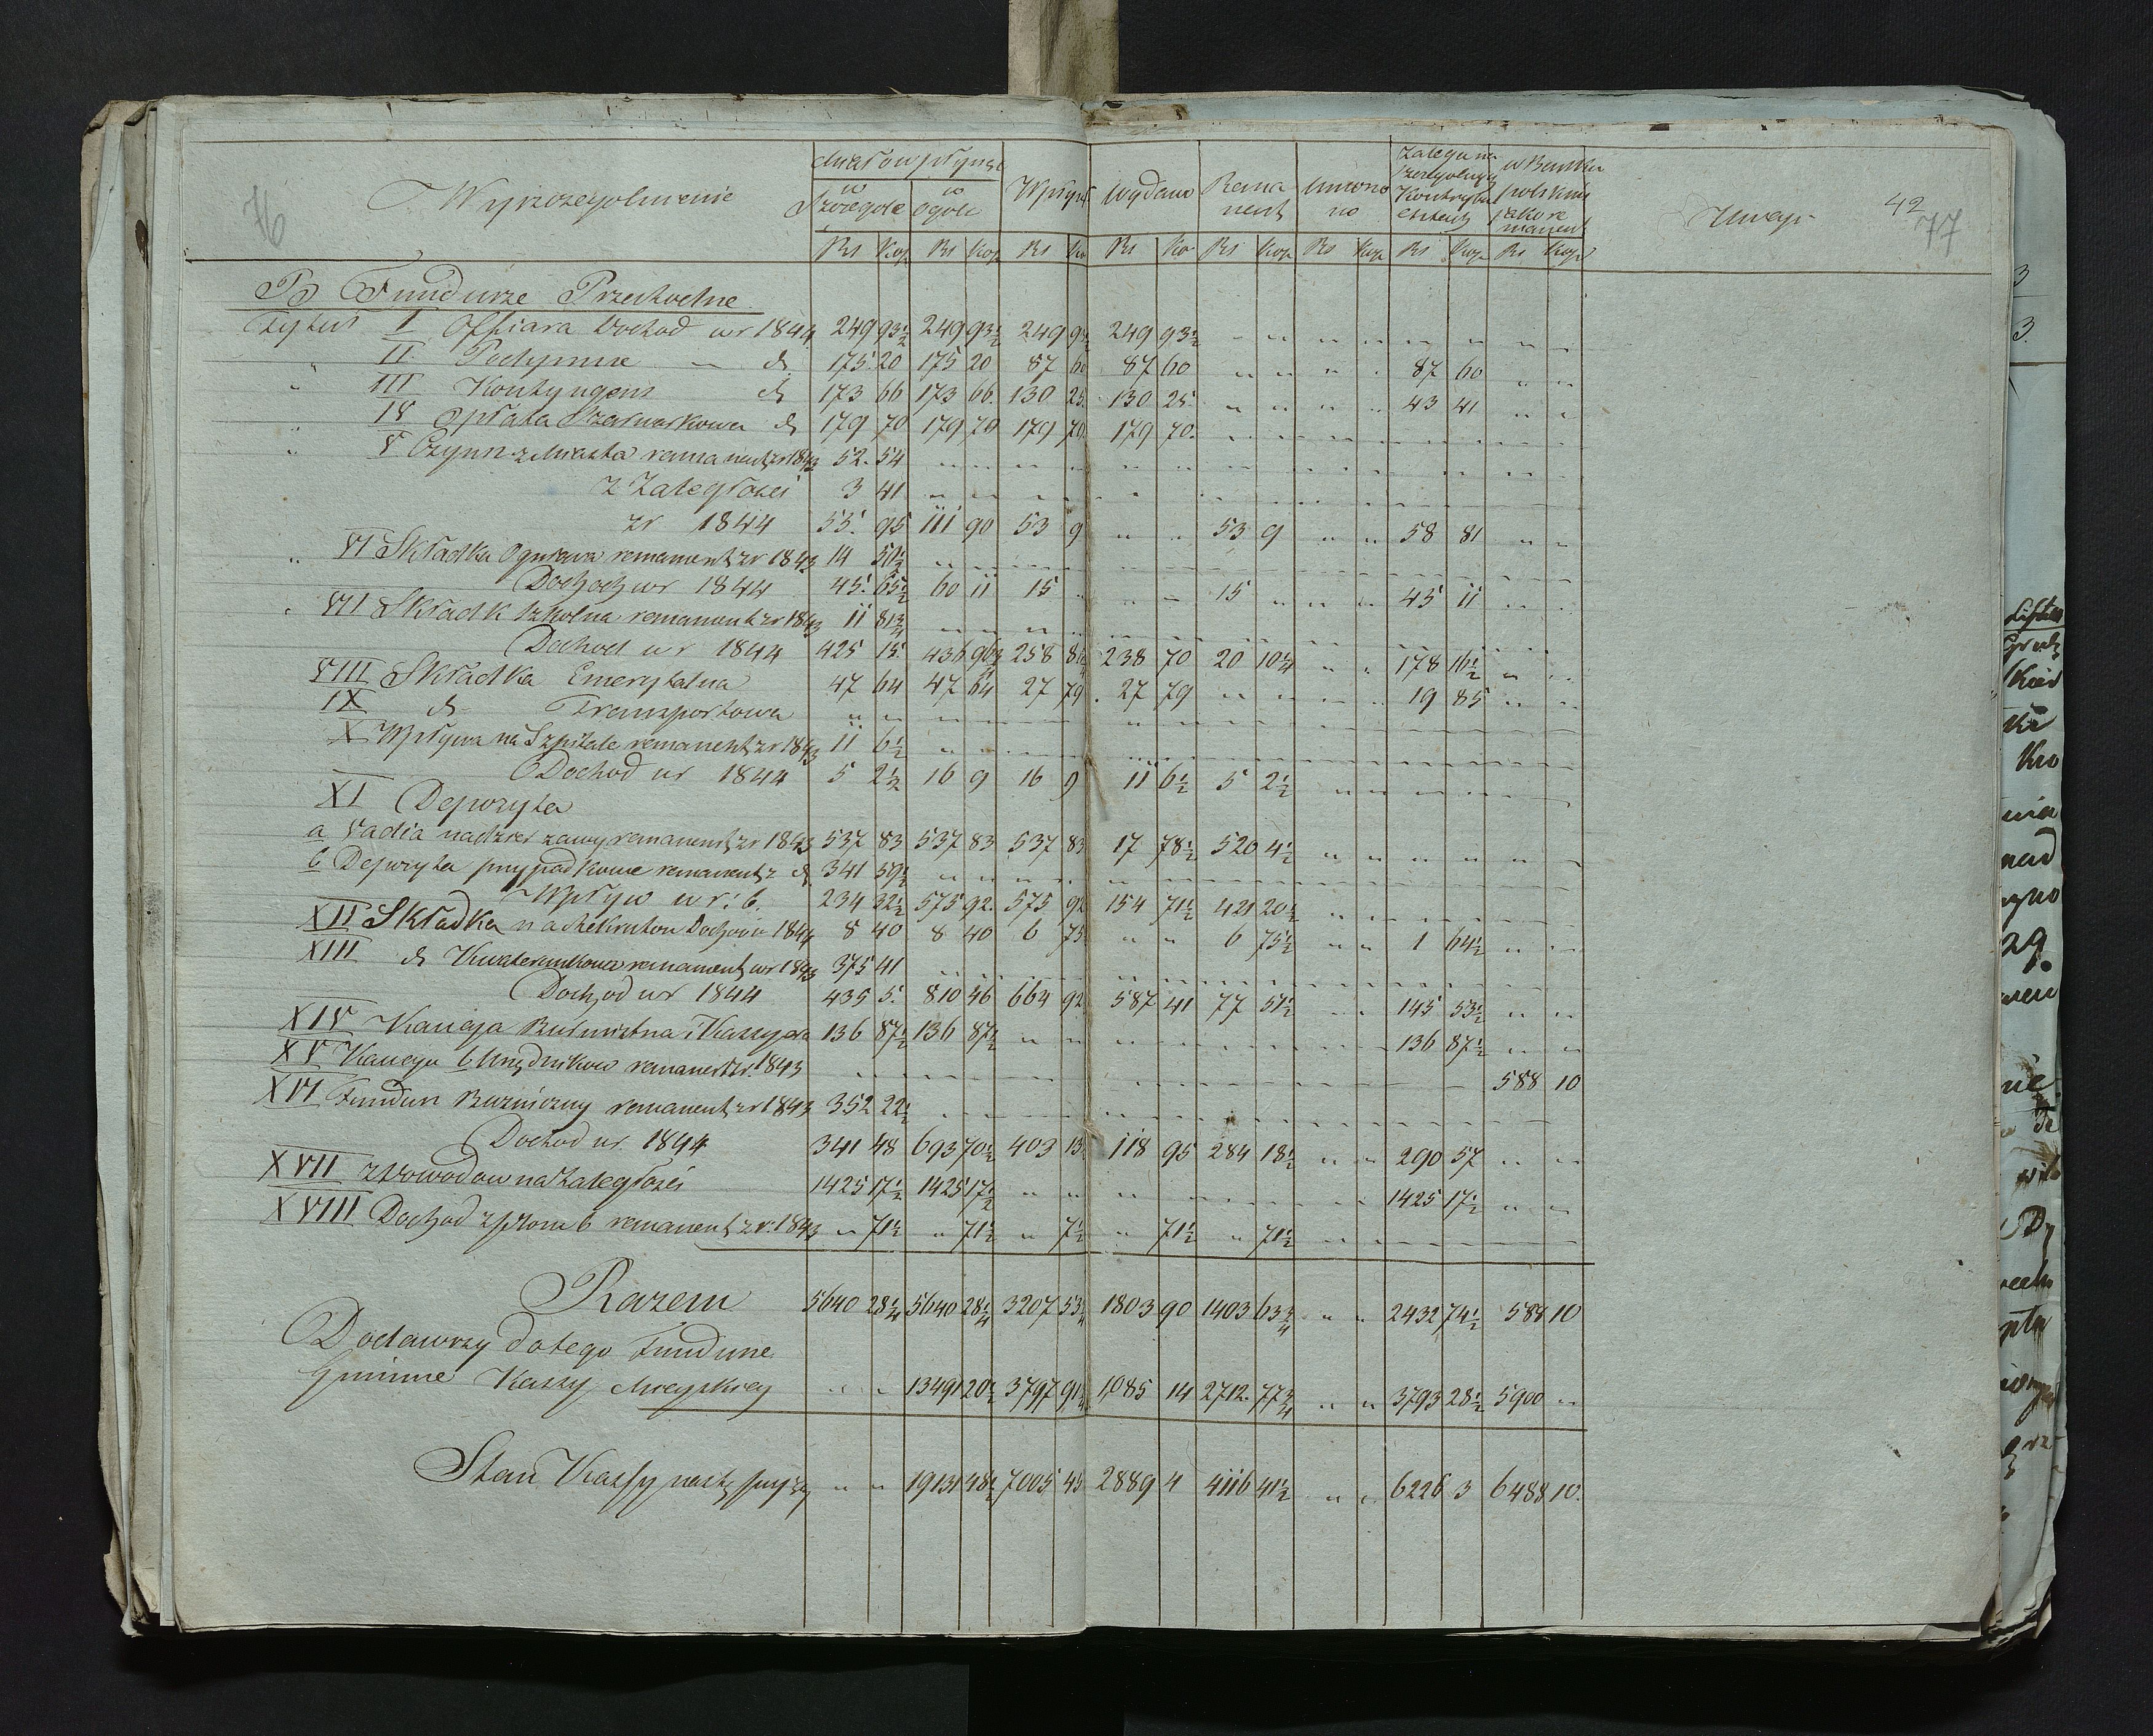 76
Wyszczegolnienie
miało wpłynąć
w Szczegole
w Ogóle
Wpłynęło
Wydano
Remanent
Umorzono
w Banku Polskim jako remanent
Uwagi
42
77
Rs Kop Rs Kop Rs Ko Rs Ko Rs Kop Rs Kop Rs Kop Rs Kop
B Fundusze Przechodne
Tytuł I Offiara Dochod w r 1844 249 93½ 249 93½ 249 93½ 249 93½ " " " " " " " "
" II Podymne " d 175 20 175 20 87 60 87 60 " " " " 87 60 " "
" III Kontyngens d 173 66 173 66 130 25 130 25 " " " " 43 41 " "
" IV Opłata Szarwarkowa d 179 70 179 70 179 70 179 70 " " " " " " " "
" V Czynsz z Miasta remanent z r 1843 52 54 " " " " " " " " " " " " " "
z Zaległości 3 41 " " " " " " " " " " " " " "
z r 1844 55 95 111 90 53 9 " " 53 9 " " 58 81 " "
" VI Składka Ogniowa remanent z r 1843 14 50½ " " " " " " " " " " " " " "
Dochod w r 1844 45 65½ 60 11 15 " " " 15 " " " 45 11 " "
" VII Składk Szkolna remanent z r 1843 11 81¾ " " " " " " " " " " " " " "
Dochod w r 1844 425 15 436 96¾ 258 81 238 70 20 10¼ " " 178 16½ " "
VIII Składka Emerytalna 47 64 47 64 27 79 27 79 " " " " 19 85 " "
IX d Transportowa " " " " " " " " " " " " " " " "
X Wpływa na Szpitale remanent z r 1843 11 6½ " " " " " " " " " " " " " "
Dochod w r 1844 5 2½ 16 9 16 9 11 6½ 5 2½ " " " " " "
XI Depozyta
a Vadia na dzierzawy remanent z r 1843 537 83 537 83 537 83 17 78½ 520 4½ " " " " " "
b Depozyta przypadkowe remanent z d 341 59½ " " " " " " " " " " " " " "
Wpływ w r. b. 234 32½ 575 92 575 92 154 71½ 421 20½ " " " " " "
XII Składka na Rekrutow Dochod w 1844 8 40 8 40 6 75 " " 6 75½ " " 1 64½ " "
XIII d Kwaterunkowa remanent w r 1843 375 41 " " " " " " " " " " " " " "
Dochod w r 1844 435 5 810 46 664 92 587 41 77 51½ " " 145 53½ " "
XIV Kaucja Burmistrza i Kassyera 136 87½ 136 87½ " " " " " " " " 136 87½ " "
XV Kaucya b Urzędnikow remanent z r. 1843 " " " " " " " " " " " " " " 588 10
XVI Fundusz Bużniczny remanent z r 1843 352 22½ " " " " " " " " " " " " " "
Dochod w r. 1844 341 48 693 70½ 403 13½ 118 95 284 18½ " " 290 57 " "
XVII z Dowodow na Zaległości 1425 17½ 1425 17½ " " " " " " " " 1425 17½ " "
XVIII Dochod z remanent z r. 1843 " 71½ " 71½ " 7½ " 71½ " 71½ " " " " " "
Razem 5640 28¼ 5640 28¼ 3207 53¾ 1803 90 1403 63¾ " " 2432 74½ 588 10
Dodawszy do tego Fundusze
Gminne Kassy Mieyskiey " " 13491 20½ 3797 91¾ 1085 14 2712 77¾ " " 3793 28½ 5900 "
Stan Kassy " " 19131 48½ 7005 45 2889 4 4116 41½ " " 6226 3 6488 10